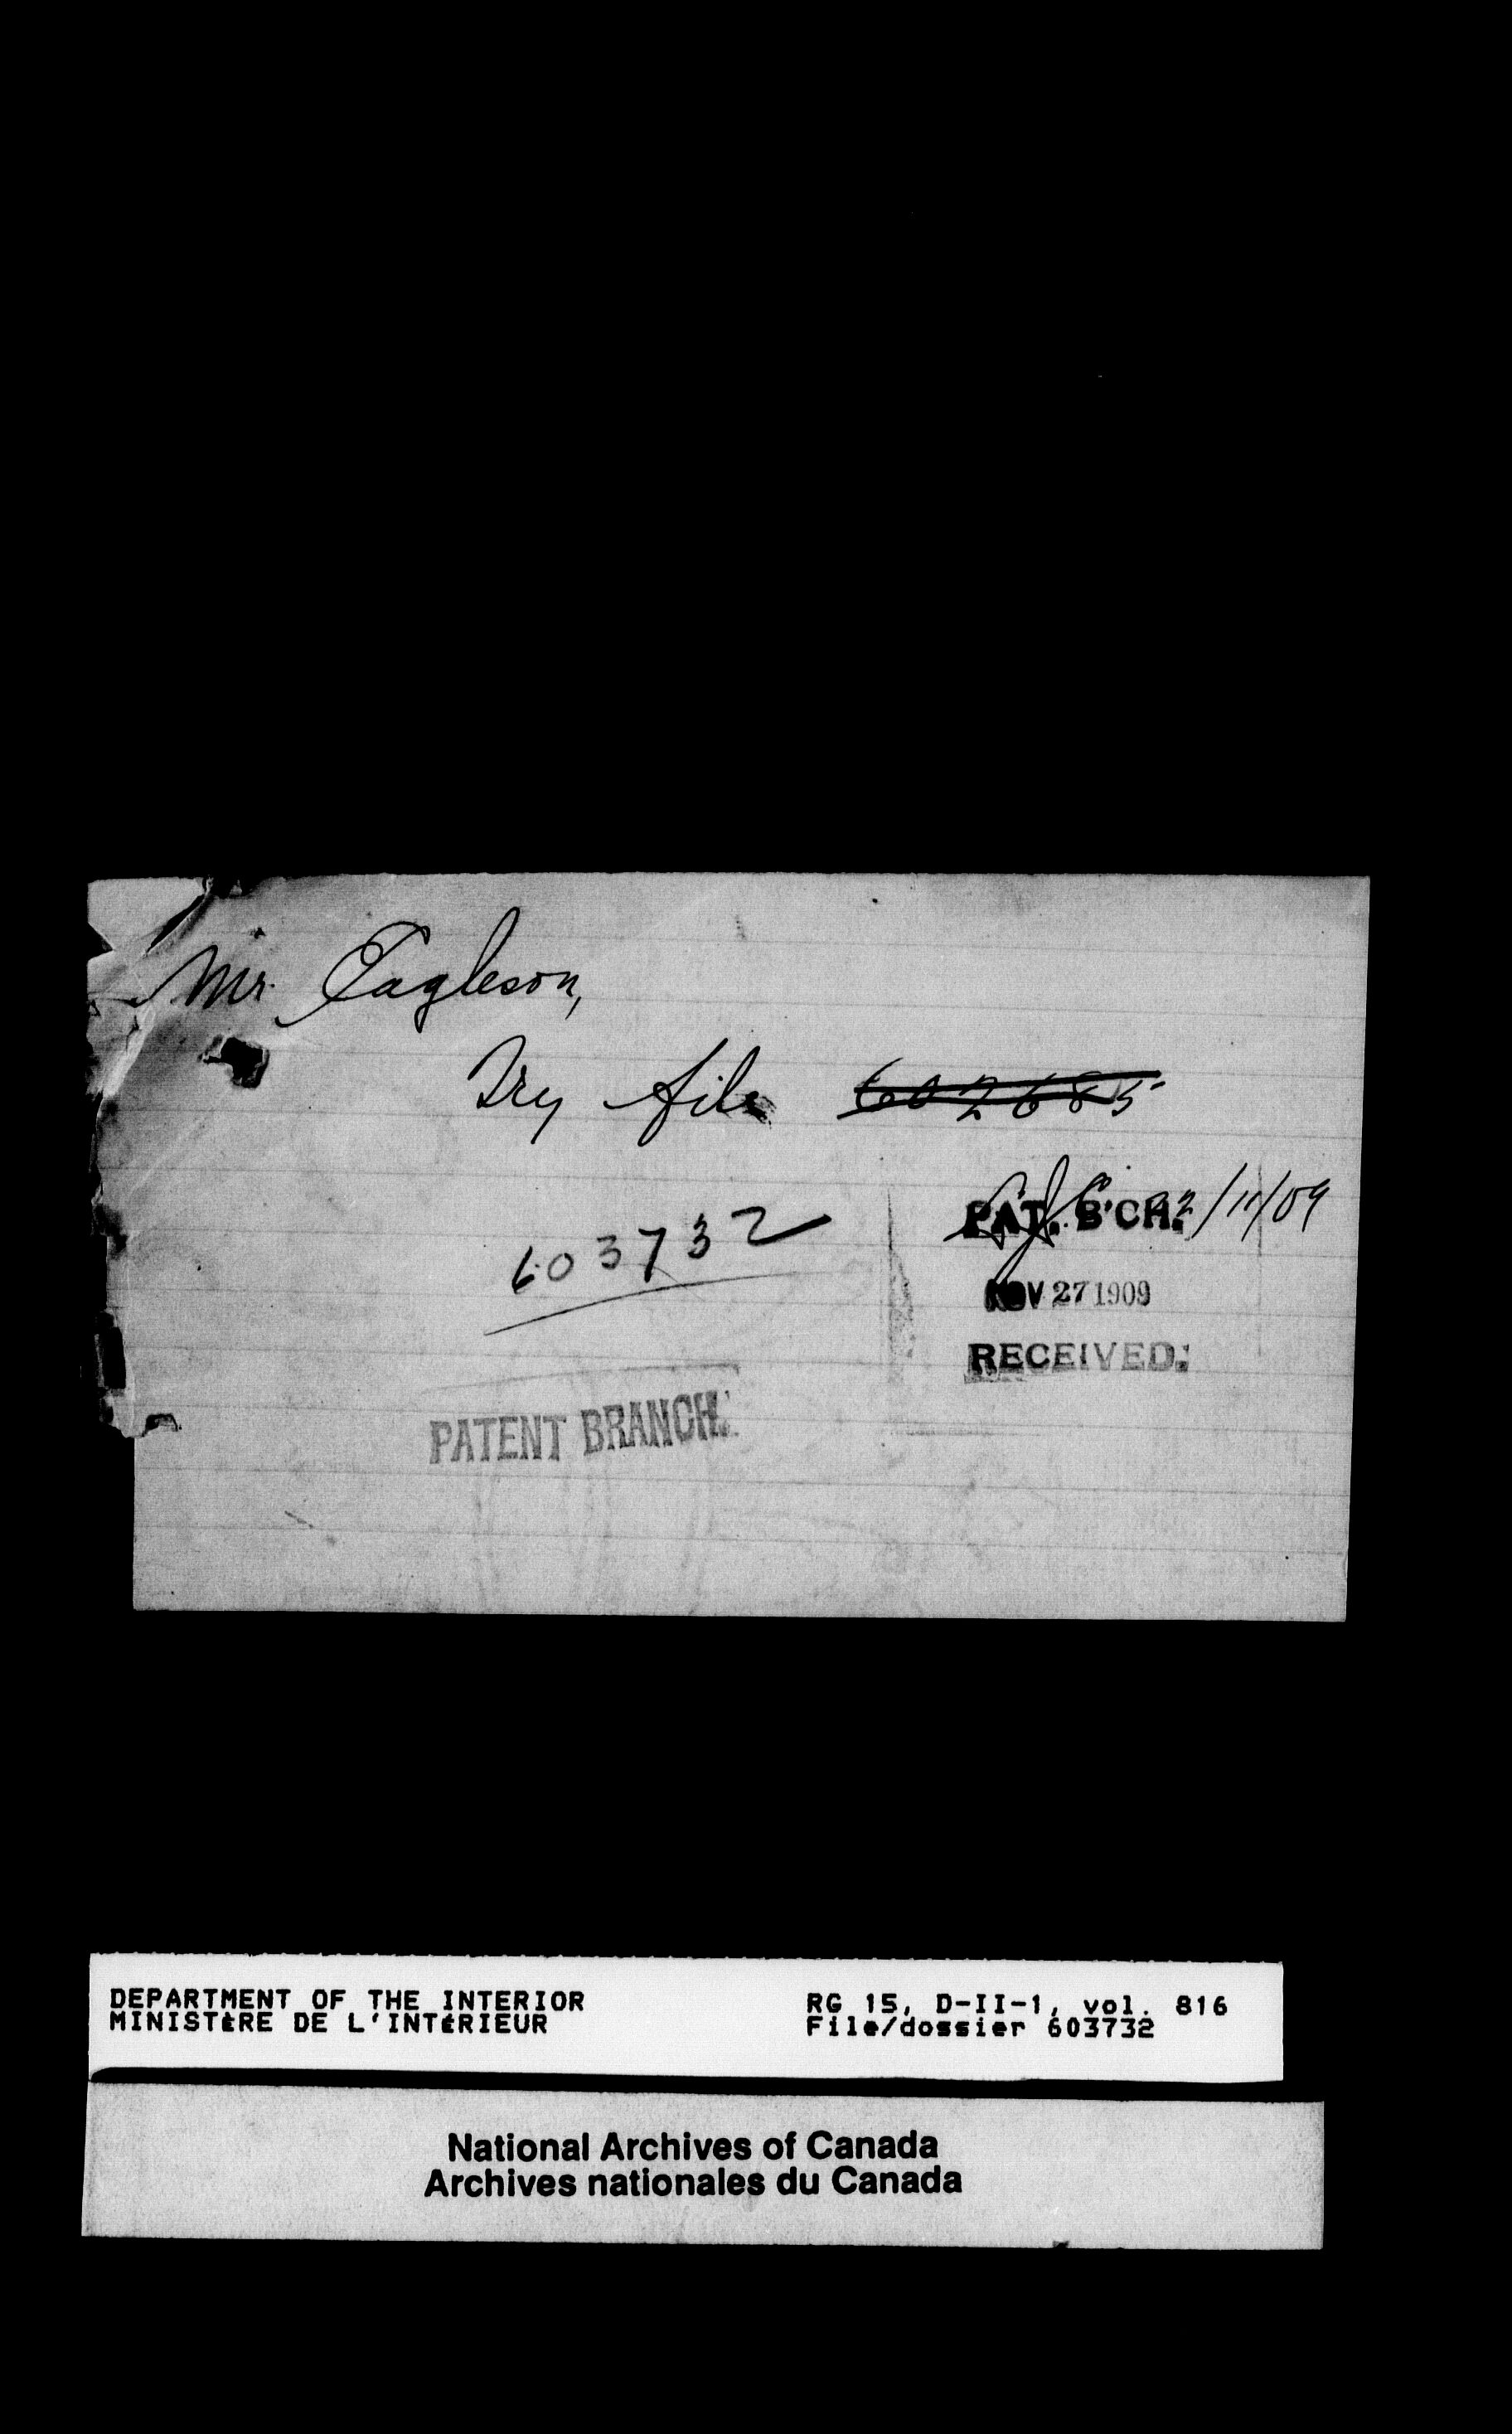 Mr. Eagleson,
Try file 602685
603732
/11/09
PAT. B'CH.
NOV 27 1909
RECEIVED.
PATENT BRANCH.
DEPARTMENT OF THE INTERIOR
MINISTÈRE DE L'INTÉRIEUR
RG 15, D-II-1, vol. 816
File/dossier 603732
National Archives of Canada
Archives nationales du Canada